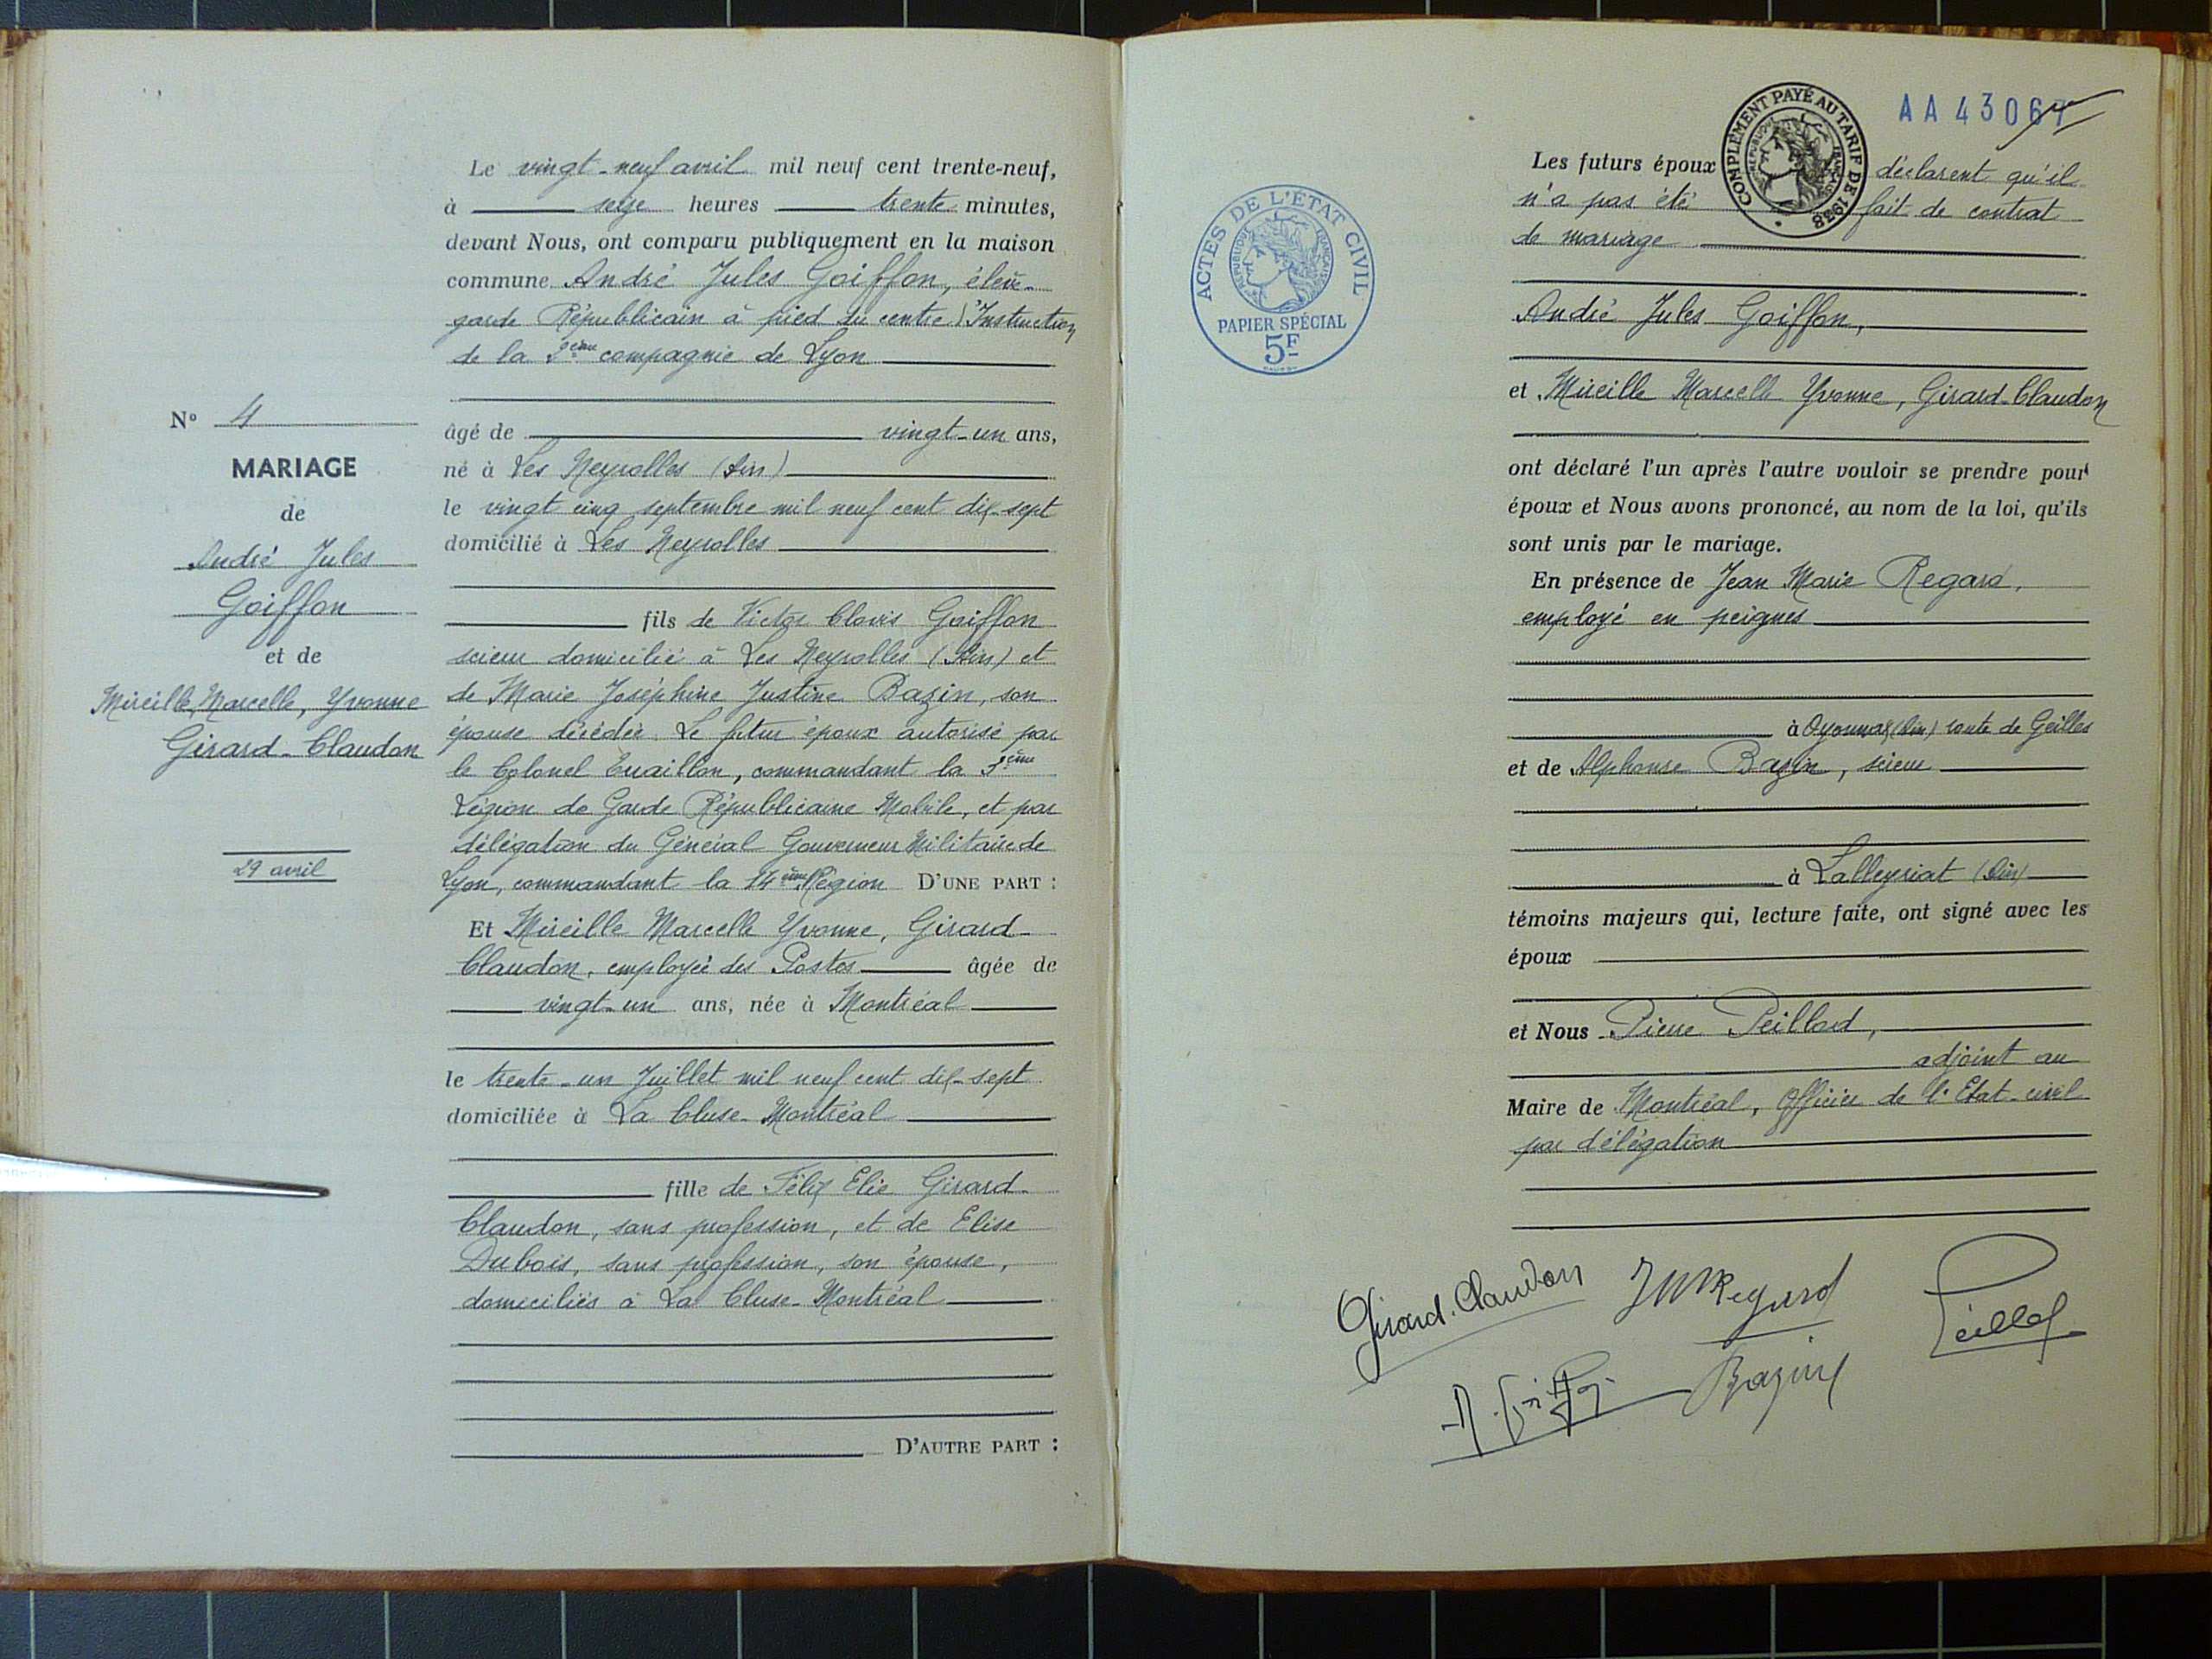 N° 4
MARIAGE
de
André Jules
Goiffon
et de
Mireille, Marcelle, Yvonne
Girard-Claudon
29 avril
Le vingt-neuf avril mil neuf cent trente-neuf,
à seize heures trente minutes,
devant Nous, ont comparu publiquement en la maison
commune André Jules Goiffon, élève-
garde Républicain à pied du centre d'Instruction
de la compagnie de Lyon
âgé de vingt-un ans,
né à Les Neyrolles (Ain)
le vingt cinq septembre mil neuf cent dix-sept
domicilié à Les Neyrolles
fils de Victor Clovis Goiffon
scieur domicilié à Les Neyrolles (Ain) et
de Marie Joséphine Justine Bazin, son
épouse décédée. Le futur époux autorisé par
le Colonel commandant la
Légion de Garde Républicaine Mobile, et par
délégation du Général Gouverneur Militaire de
Lyon, commandant la 14ème Région D'UNE PART :
Et Mireille Marcelle Yvonne, Girard-
Claudon, employée des Postes âgée de
vingt-un ans, née à Montréal
le trente-un Juillet mil neuf cent dix-sept
domiciliée à La Cluse-Montréal
fille de Félix Elie Girard-
Claudon, sans profession, et de Elise
Dubois, sans profession, son épouse,
domiciliés à La Cluse-Montréal
D'AUTRE PART :
ACTES DE L'ÉTAT CIVIL
RÉPUBLIQUE FRANÇAISE
PAPIER SPÉCIAL
5F
COMPLÉMENT PAYÉ AU TARIF DE 1938
RÉPUBLIQUE FRANÇAISE
AA 43067
Les futurs époux déclarent qu'il
n'a pas été fait de contrat
de mariage
André Jules Goiffon,
et Mireille Marcelle Yvonne, Girard-Claudon
ont déclaré l'un après l'autre vouloir se prendre pour
époux et Nous avons prononcé, au nom de la loi, qu'ils
sont unis par le mariage.
En présence de Jean Marie Regard,
employé en peignes
à Oyonnax (Ain) route de Geilles
et de Alphonse Bazin, scieur
à Lalleyriat (Ain)
témoins majeurs qui, lecture faite, ont signé avec les
époux
et Nous Pierre Peillod,
adjoint au
Maire de Montréal, Officier de l'Etat-civil
par délégation
Girard-Claudon JMRegard Peillod
A. Goiffon Bazin